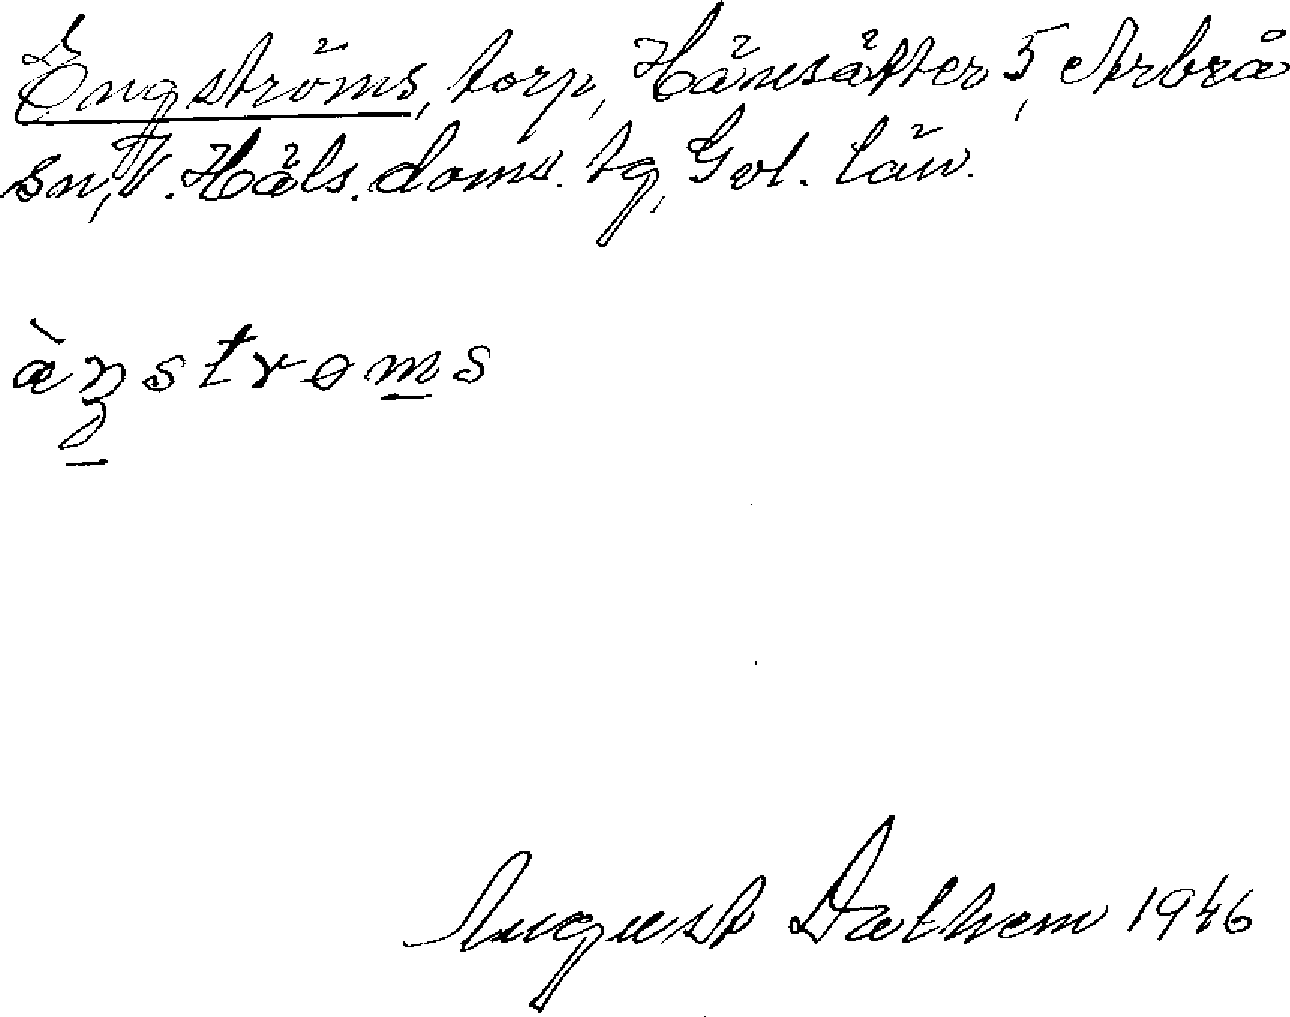 Engströms, torp, Hänsätter 5, Arbrå
sn, V. Häls. doms. tg, Gvl. län.
àŋstroms
August Dathem 1946